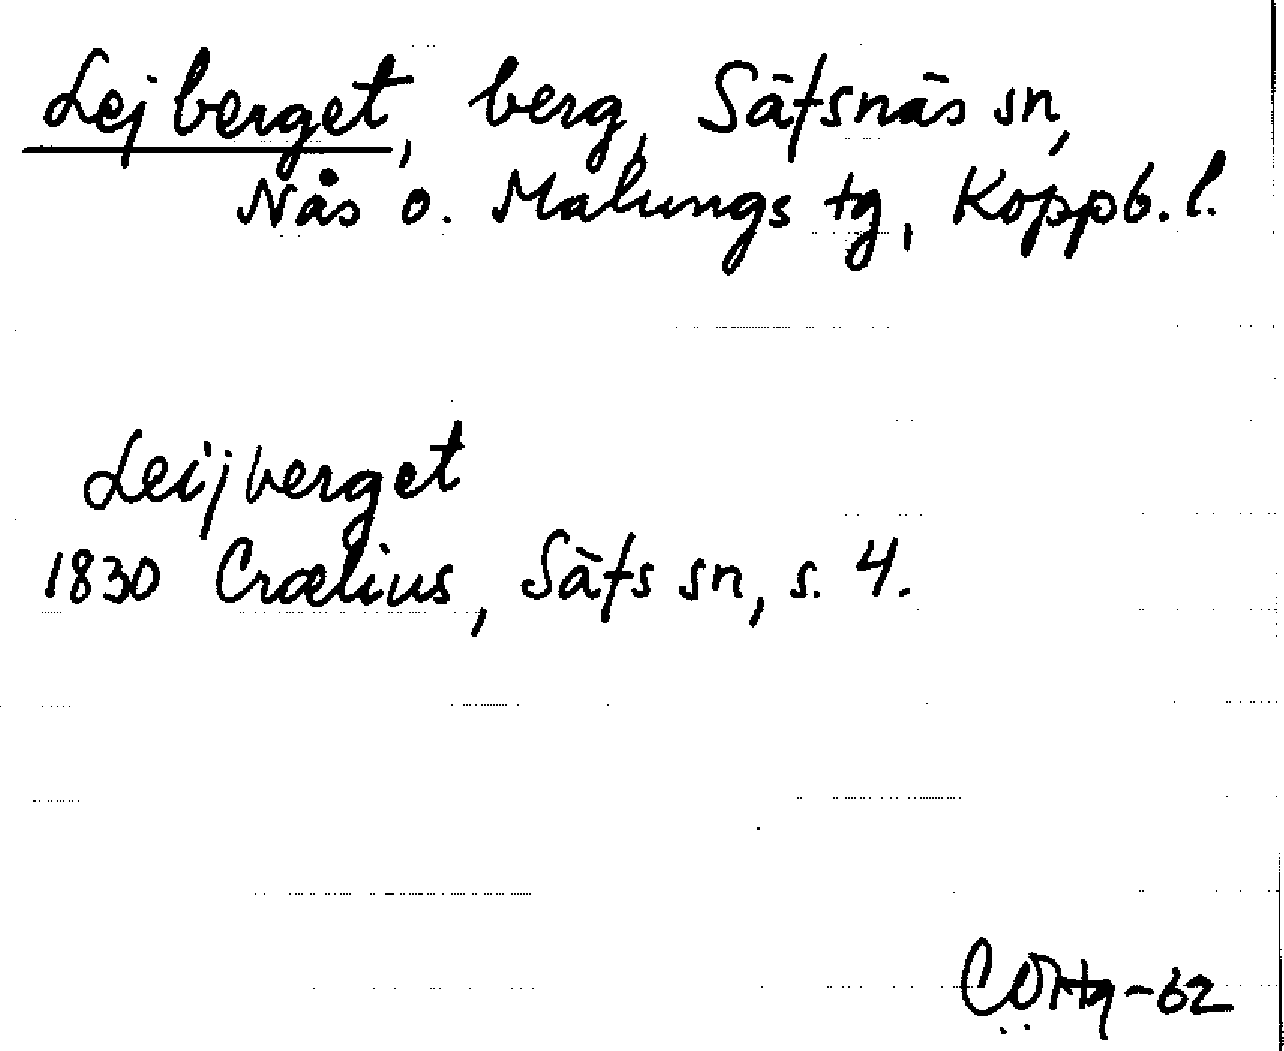 Lejberget, berg, Säfsnäs sn,
Nås o. Malungs tg, Koppb. l.
Leijberget
1830 Crælius, Säfs sn, s. 4.